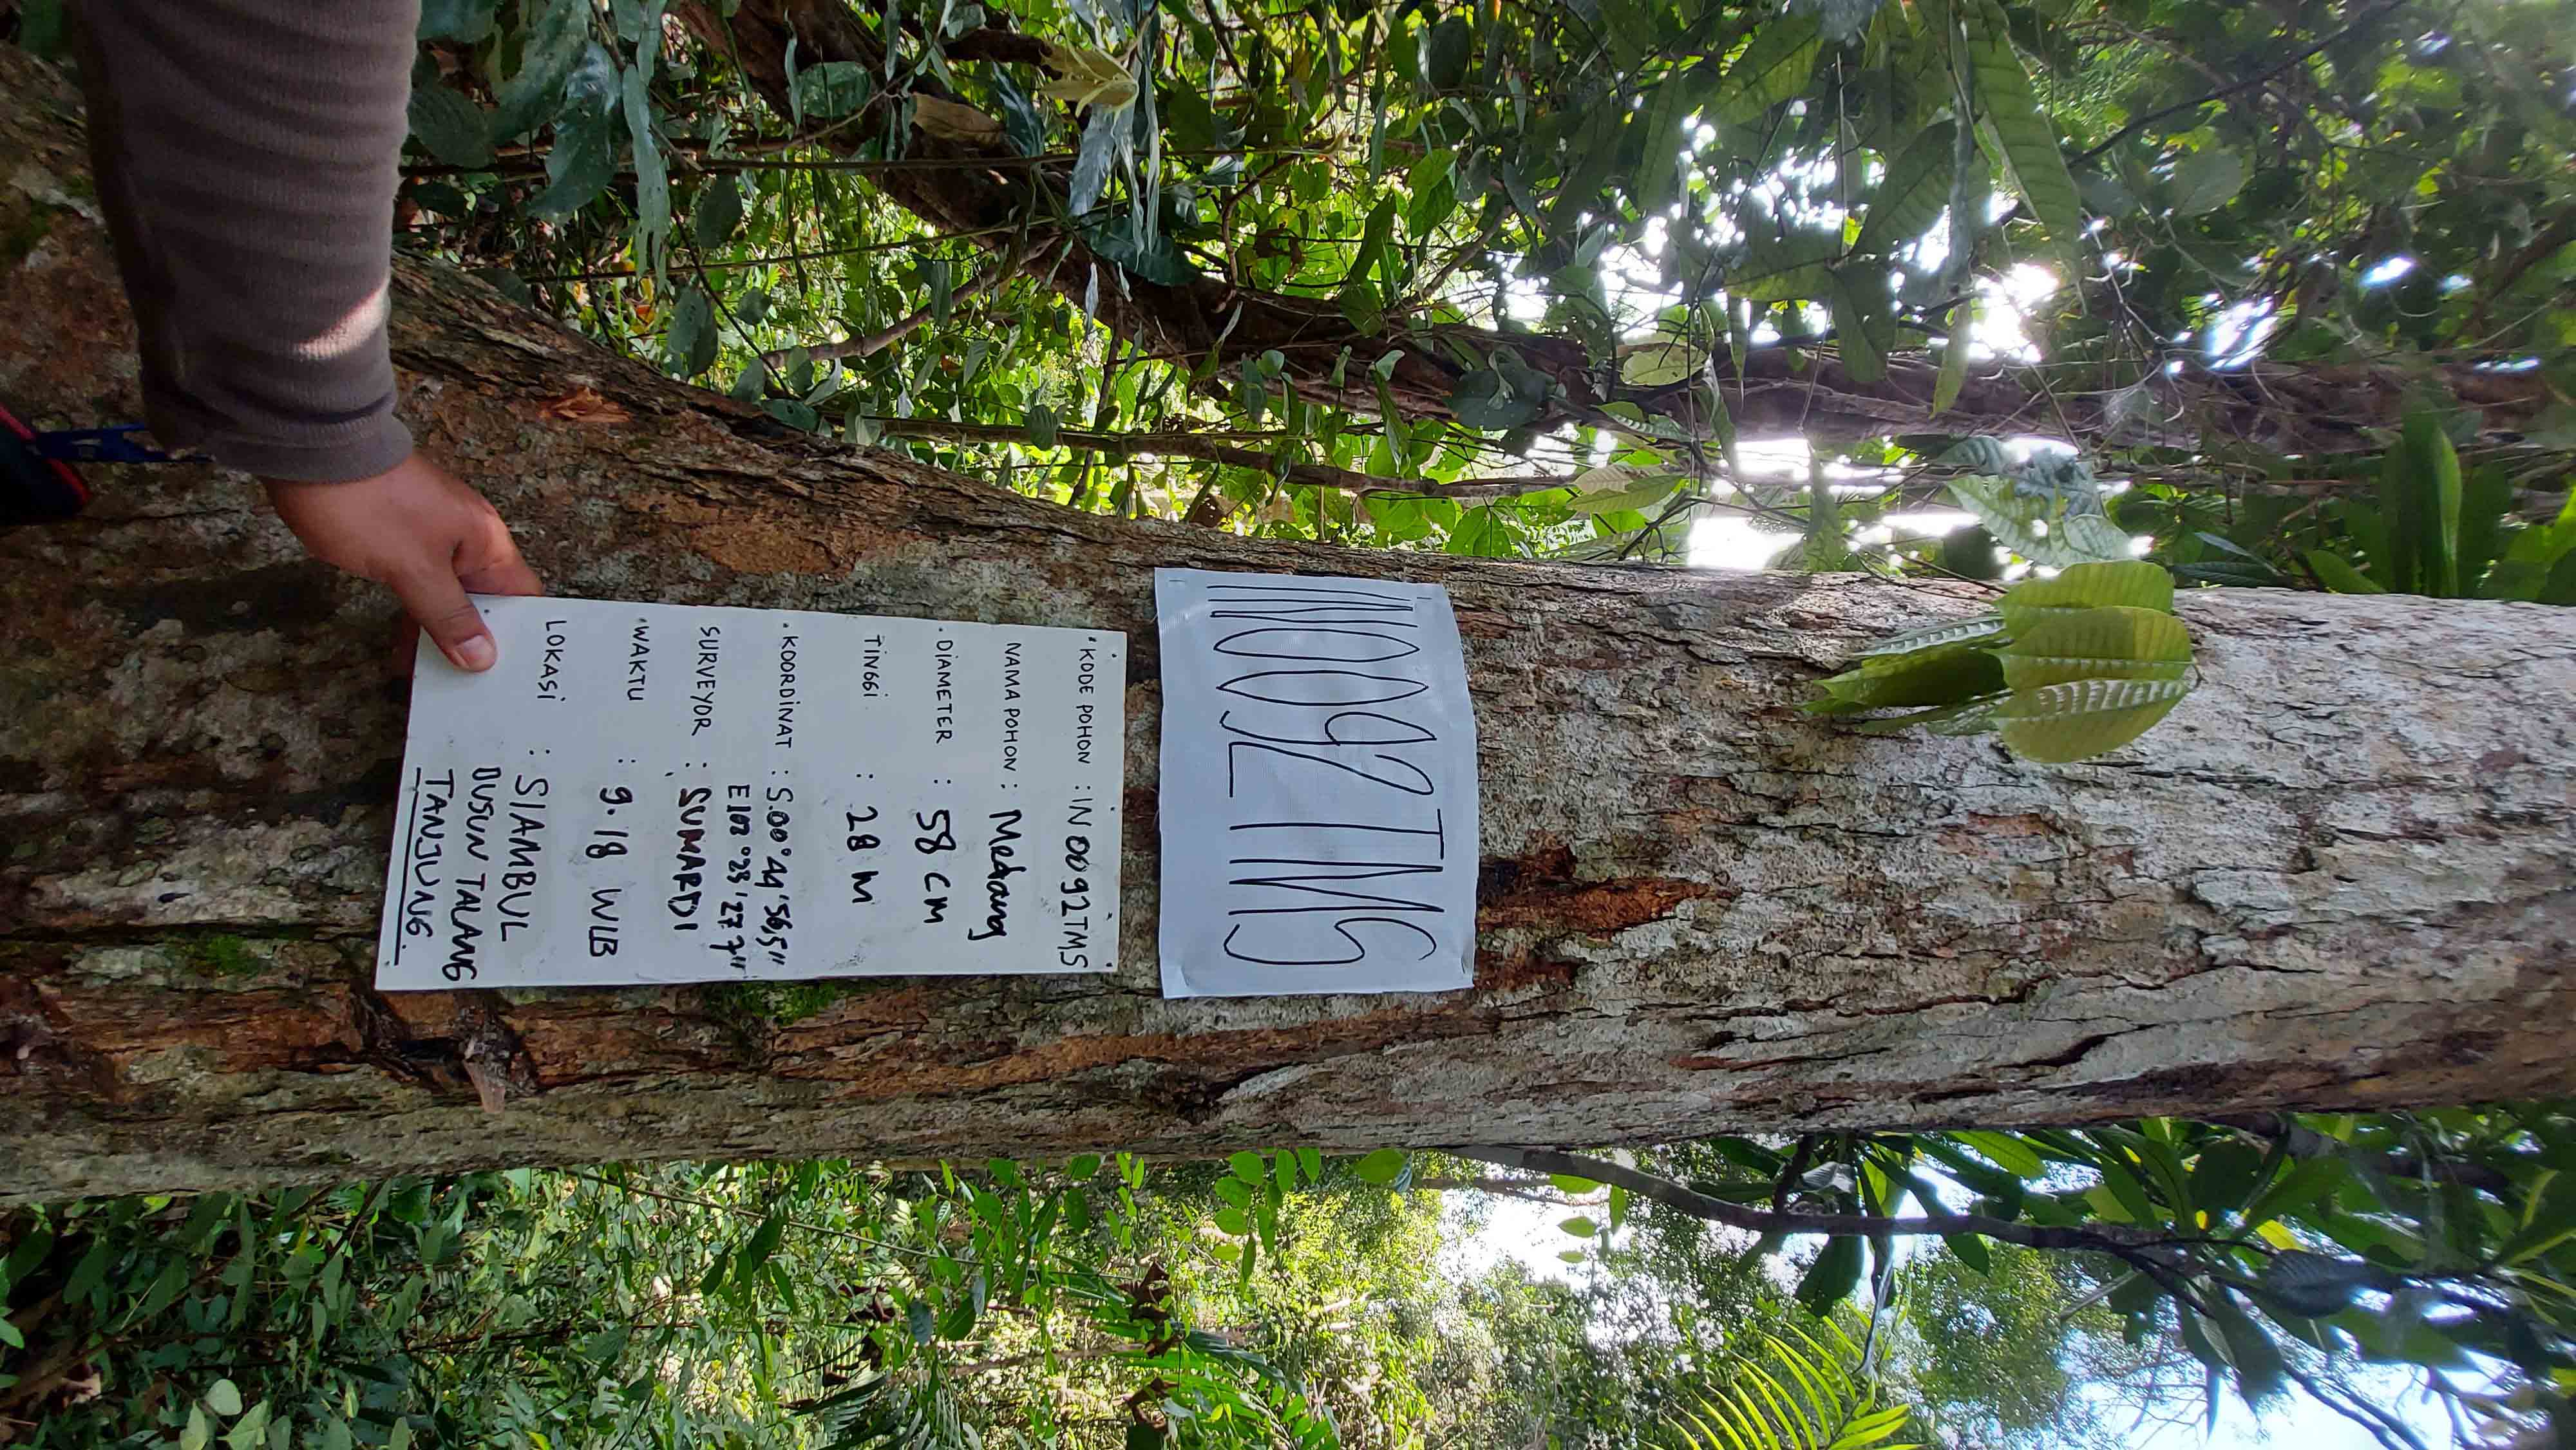 IN0092TMS
KODE POHON : IN 0092TMS
NAMA POHON : Medang
DIAMETER : 58 CM
TINGGI : 28 M
KOORDINAT : S.00°44'56,5"
E102°23'27 7"
SURVEYOR : SUMARDI
WAKTU : 9.18 WIB
LOKASI : SIAMBUL
DUSUN TALANG
TANJUNG.